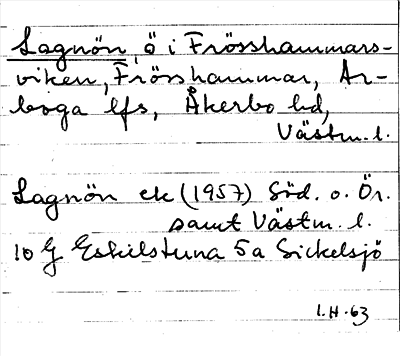 Lagnön, ö i Frösshammars-
viken, Frösshammar, Ar-
boga lfs, Åkerbo hd,
Västm. l.
Lagnön ek (1957) Söd. o. Ör.
samt Västm. l.
10 G Eskilstuna 5a Sickelsjö
1.H.63